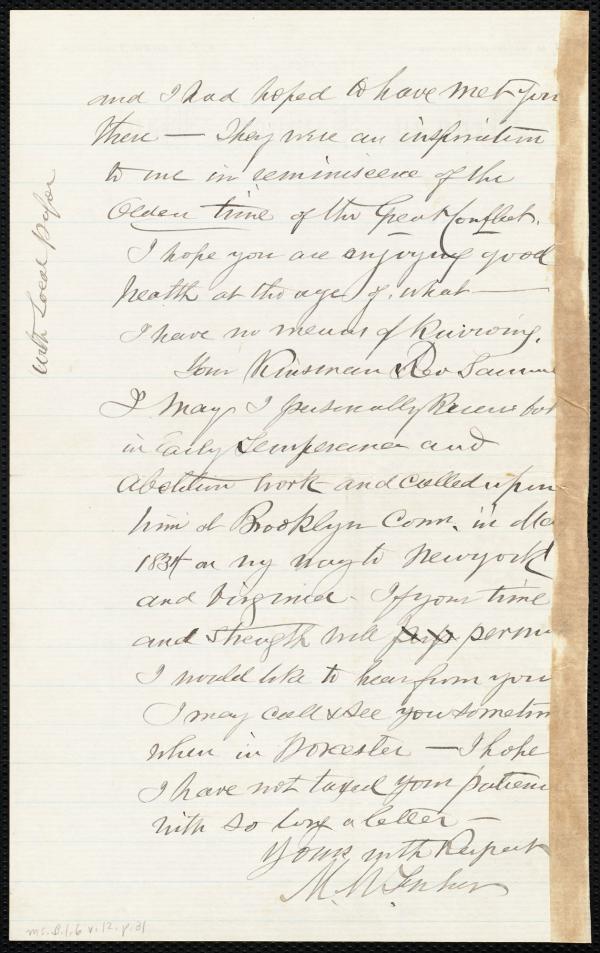 and I had hoped to have met you
there — They were an inspiration
to me in reminiscence of the
Olden time of the Great Conflict.
I hope you are enjoying good
health at the age of. what —
I have no means of knowing.
Your Kinsman Rev Samue
J May I personally knew bot
in Early Temperance and
Abolition work and called upon
him at Brooklyn Conn. in
1834 on my way to Newyork
and Virginia. If your time
and strength will permi
I would like to hear from you
I may call & see you sometim
when in Dorcester — I hope
I have not taxed your patien
with so long a letter —
Yours with Respect
M. M. Fisher
with Local paper
ms. B.1.6 v.12. p.31